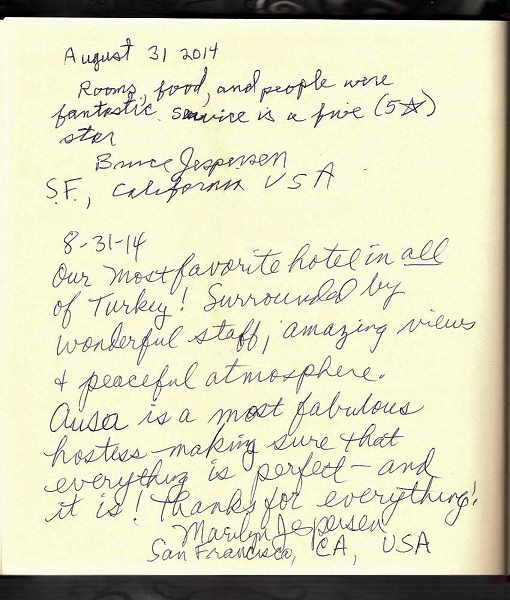 August 31 2014
Rooms, food, and people were
fantastic. Service is a five (5☆)
star
Bruce Jespersen
S.F., California USA
8-31-14
Our most favorite hotel in all
of Turkey! Surrounded by
wonderful staff, amazing views
& peaceful atmosphere.
is a most fabulous
hostess making sure that
everything is perfect - and
it is! Thanks for everything!
Marilyn Jespersen
San Francisco, CA, USA